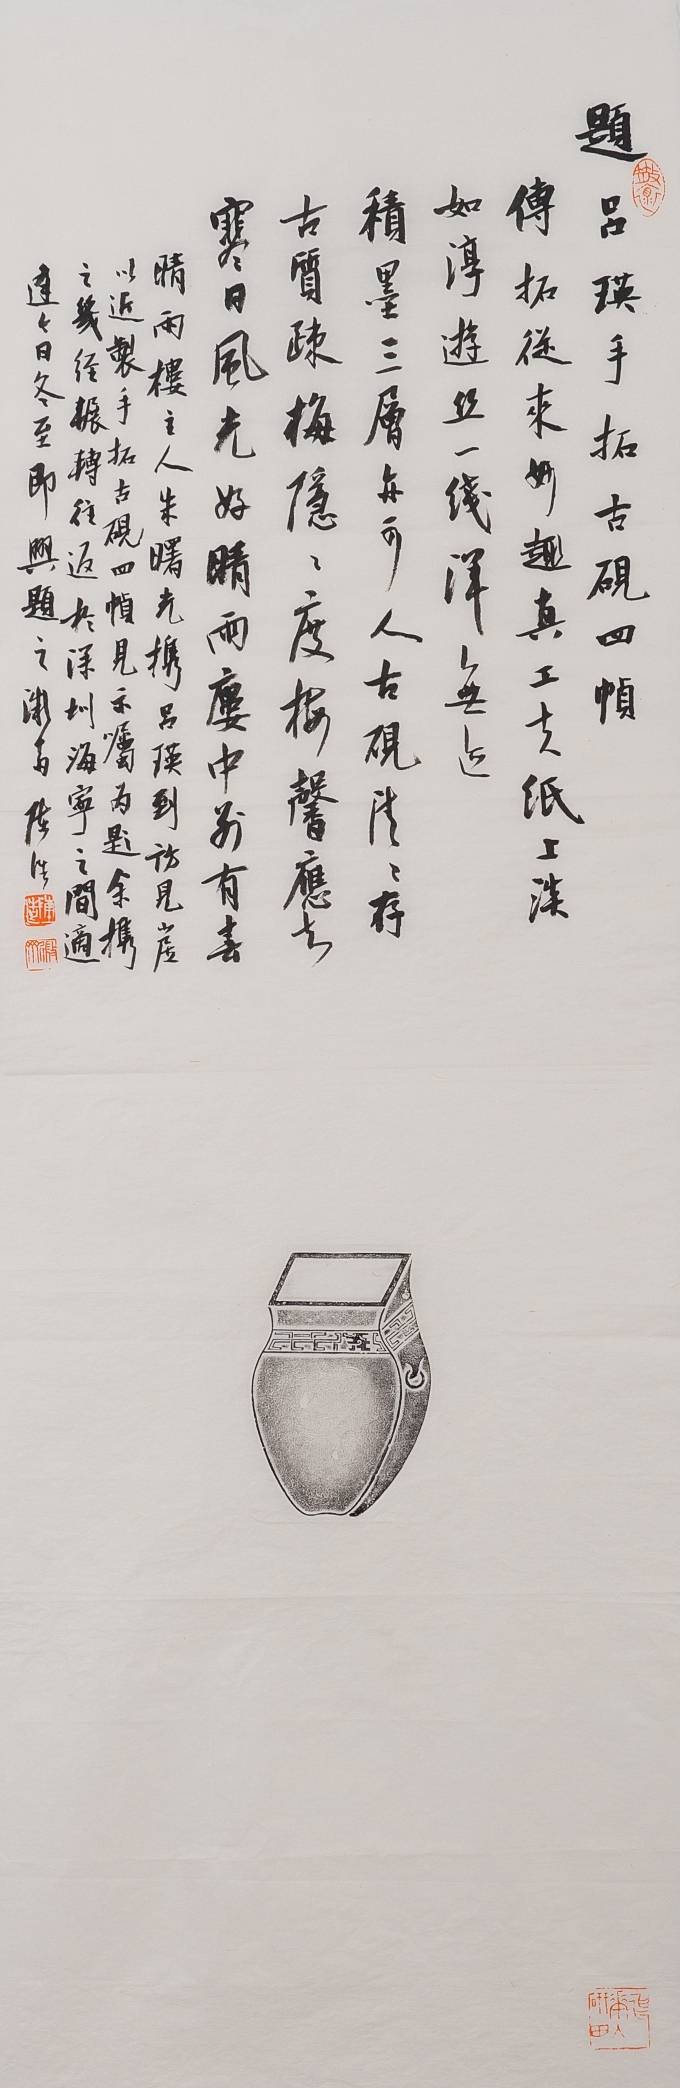 題
呂瑛手拓古硯四幀
傳拓從來妙趣真工夫紙上淡
如淳遊丝一线渾無迹
積墨三層亦可人古硯清〻存
古質疎梅隱〻度梅馨應知
寒日風光好晴雨廔中別有春
晴雨樓主人朱曙光携呂瑛到訪見崖
以近製手拓古硯四幀見示囑為題余携
之幾經輾轉往返於深圳海寧之間適
逢今日冬至即興題之漱石陳浩